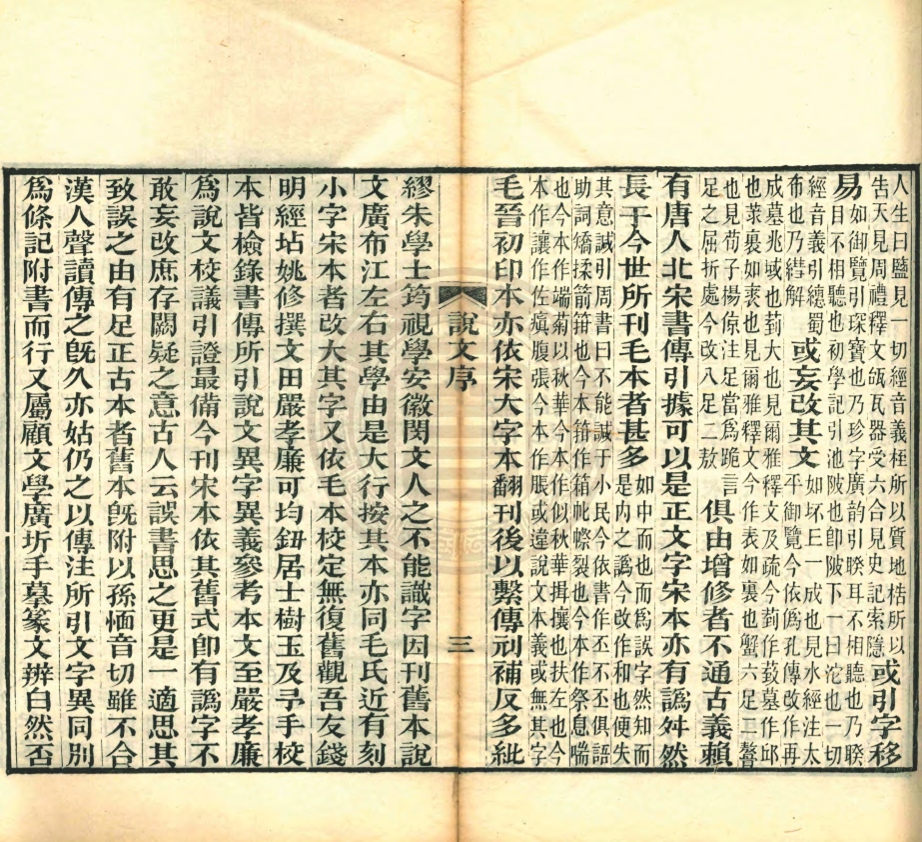 人生曰盬見一切經音義桎所以質地梏所以
告天見周禮釋文瓬瓦器受六合見史記索隱
或引字移
易
如御覽引琛寶也乃珍字廣韵引睽耳不相聽也乃睽
目不相聽也初學記引池陂也卽陂下一曰沱也一切
經音義引繐蜀
布也乃解
或妄改其文
如坏王一成也見水經注太
平御覽今依僞孔傳改作再
成墓兆域也菿大也見爾雅釋文及疏今菿作菣墓作邱
也裘如裹也見爾雅釋文今作表如裏也蟹六足二螯
也見荀子楊倞注足當爲跪言
足之屈折處今改八足二敖
俱由增修者不通古義賴
有唐人北宋書傳引據可以是正文字宋本亦有譌舛然
長于今世所刊毛本者甚多
如中而也而爲誤字然知而
是內之譌今改作和也便失
其意諴引周書曰不能諴于小民今依書作丕不丕俱語
助詞矯揉箭箝也今本箝作箱裂也今本作祭息喘
也今本作端菊以秋華今本作似秋華揖攘也扶左也今
本作讓作佐瘨腹張今本作脹或違說文本義或無其字
毛晉初印本亦依宋大字本翻刊後以繫傳刓補反多紕
說文序
三
繆朱學士筠視學安徽閔文人之不能識字因刊舊本說
文廣布江左右其學由是大行按其本亦同毛氏近有刻
小字宋本者改大其字又依毛本校定無復舊觀吾友錢
明經坫姚修撰文田嚴孝廉可均鈕居士樹玉及予手校
本皆檢錄書傳所引說文異字異義參考本文至嚴孝廉
爲說文校議引證最備今刊宋本依其舊式卽有譌字不
敢妄改庶存闕疑之意古人云誤書思之更是一適思其
致誤之由有足正古本者舊本旣附以孫愐音切雖不合
漢人聲讀傳之旣久亦姑仍之以傳注所引文字異同別
爲條記附書而行又屬顧文學廣圻手摹篆文辨白然否